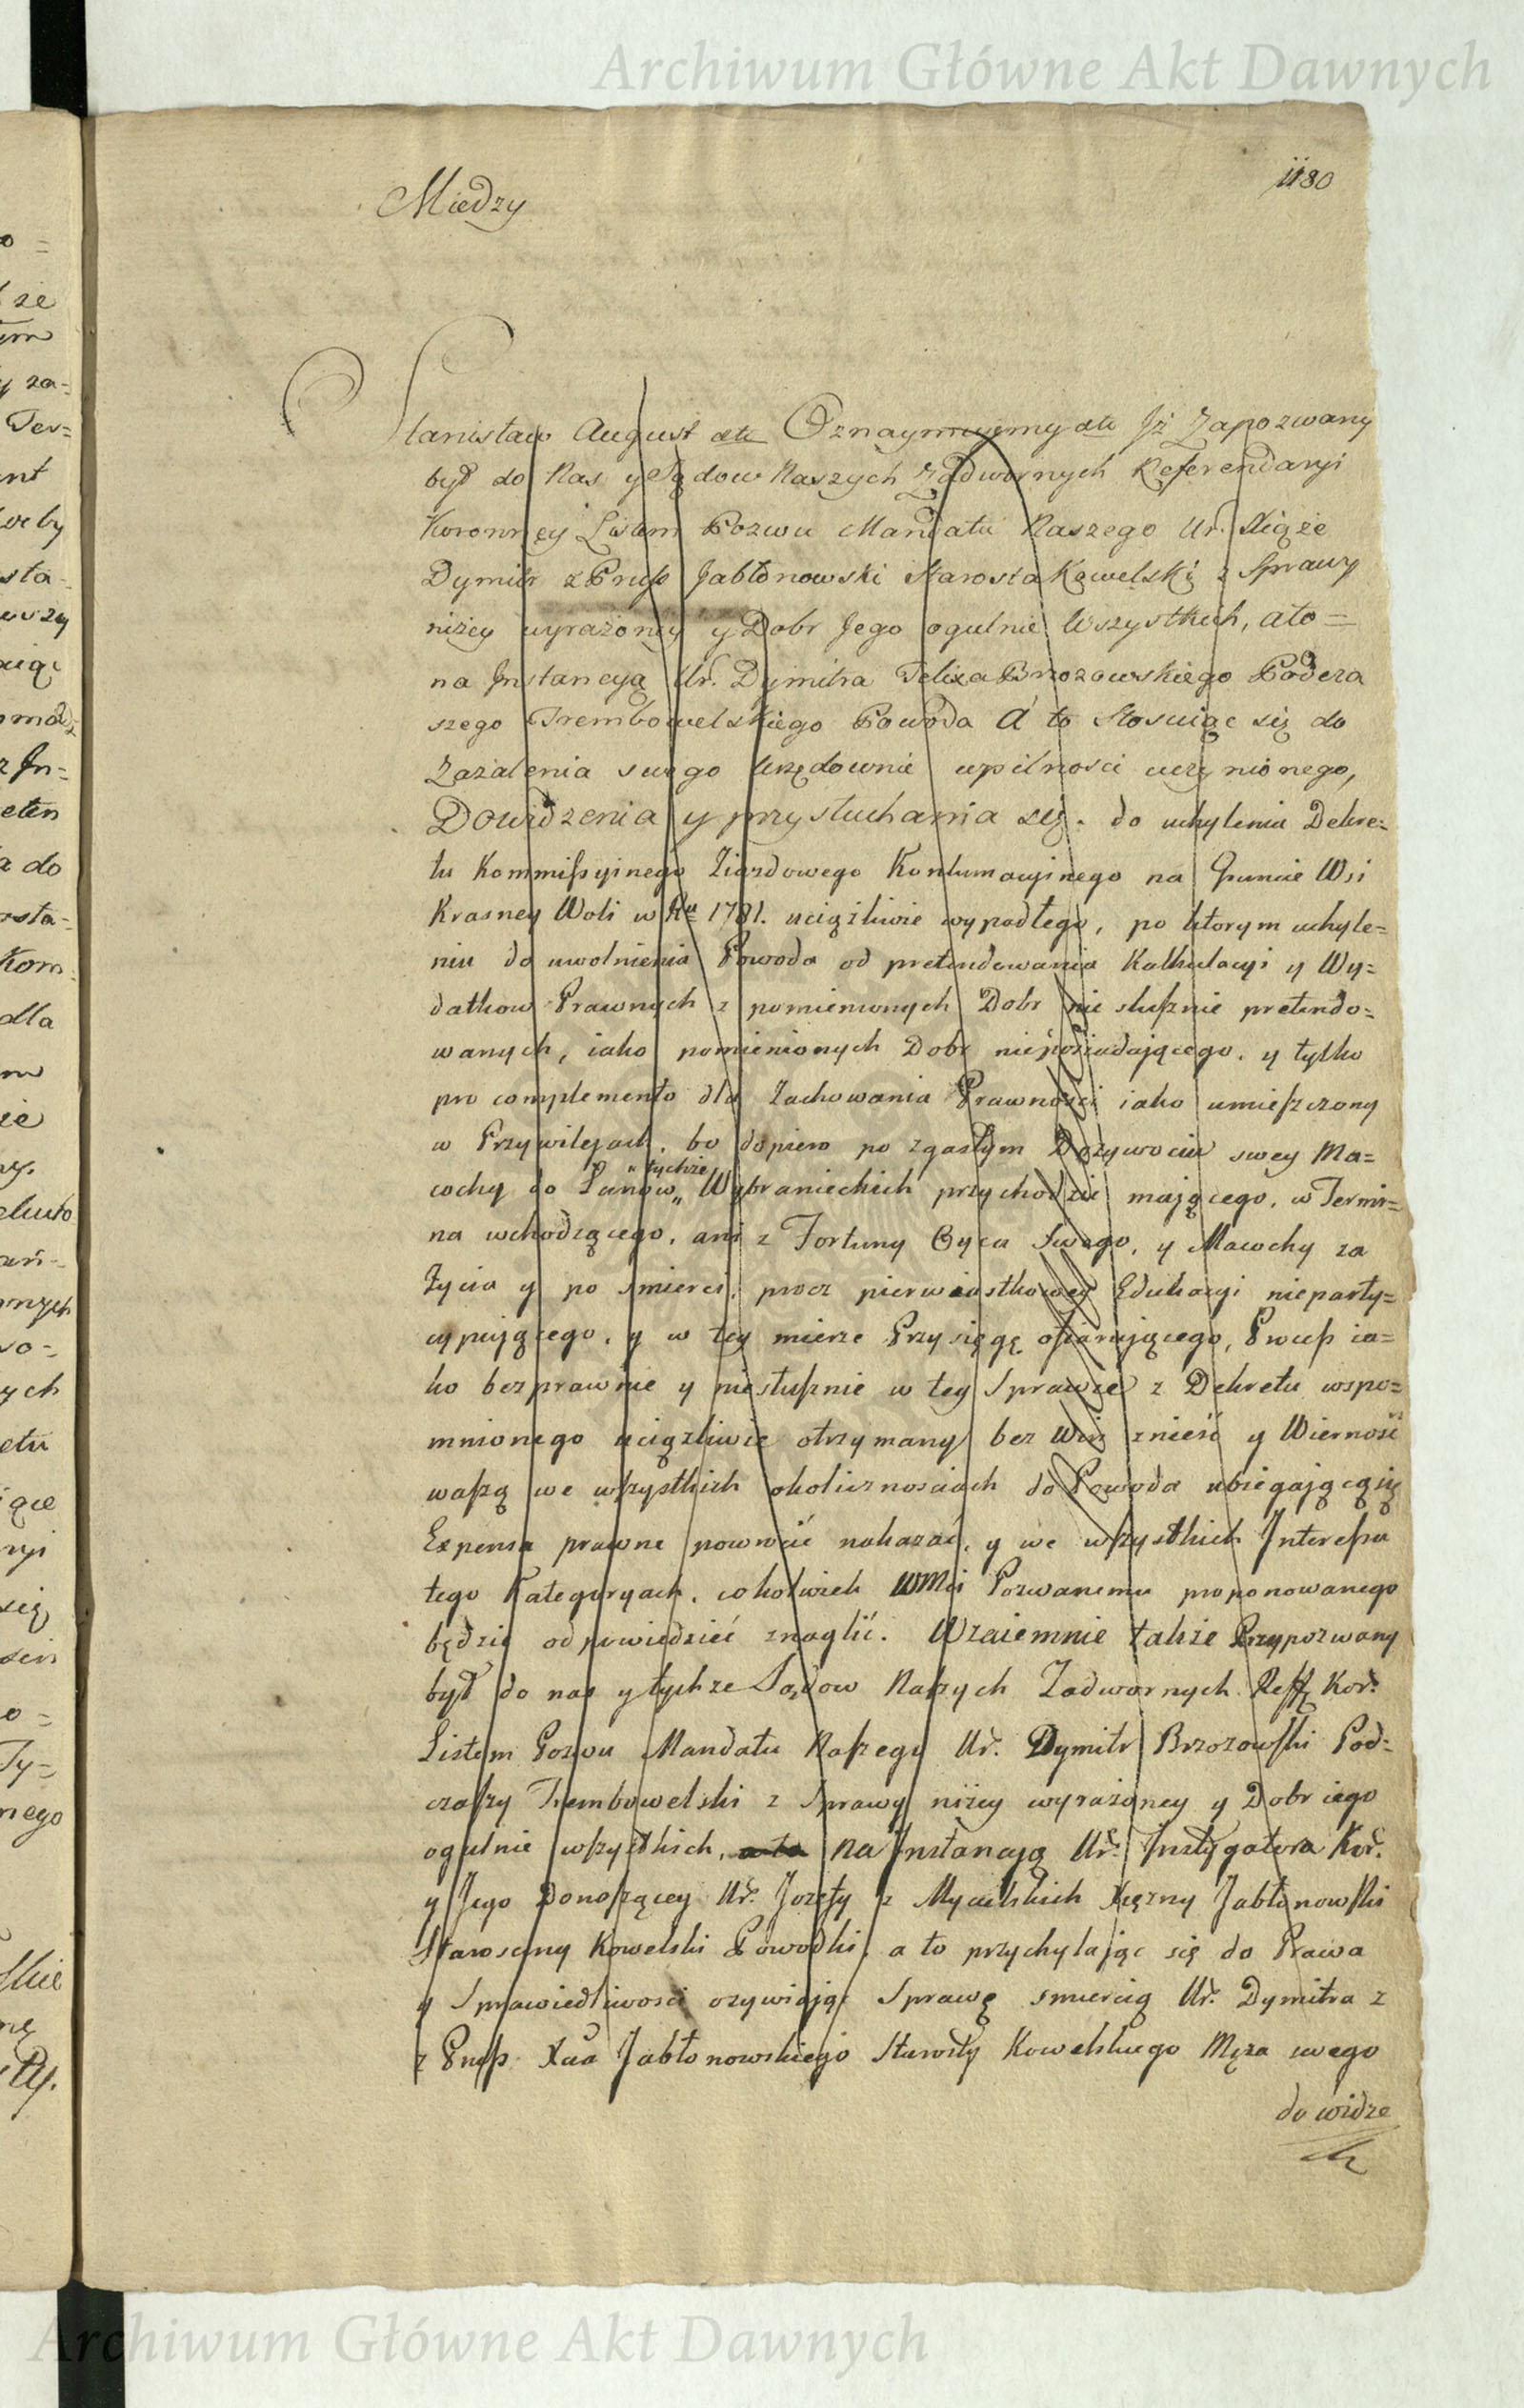 Archiwum Główne Akt Dawnych
1180
Miedzy
Stanisław August etc Oznaymuiemy etc Jż Zapozwany
był do Nas y Sądow Naszych Zadwornych Referendaryi
Koronney Listem Pozwu Mandatu Naszego Ur. Xiąże
Dymitr z Pruss Jabłonowski Starosta Kowelski z Sprawy
niżey wyrażoney y Dobr Jego ogulnie Wszystkich, a to =
na Instancyą Ur. Dymitra Felixa Brzozowskiego Podcza
szego Trembowelskiego Powoda A to Stosuiąc się do
Zażalenia swego Urzędownie w pilności uczynionego,
Dowidzenia y przysłuchania się. do uchylenia Dekre=
tu Kommissyinego Ziazdowego Kontumacyinego na Gruncie Wsi
Krasney Woli w Ru 1781. uciążliwie wypadłego, po ktorym uchyle=
niu do uwolnienia Powoda od pretendowania Kalkulacyi y Wy=
datkow Prawnych z pomienionych Dobr nie słusznie pretendo=
wanych, iako pomienionych Dobr nieposiadaiącego. y tylko
pro complemento dla Zachowania Prawności iako umieszczony
w Przywilejach, bo dopiero po zgasłym Dożywociu swey Ma=
tychże
cochy do Łanów Wybranieckich przychodzić maiącego, w Termi=
na wchodzącego, ani z Fortuny Oyca Swego, y Macochy za
Życia y po śmierci, procz pierwiastkowey Edukacyi niepart y=
cypuiącego, y w tey mierze Przysięgę ofiaruiącego, Proceß ia=
ko bezprawnie y niesłusznie w tey Sprawie z Dekretu wspo=
mnionego uciążliwie otrzymany bez Win znieść y Wierność
waszą we wszystkich okolicznosciach do Powoda ubiegaiącą się
Expensa prawne powrócić nakazać, y we wszystkich Interessu
tego Kategoryach, cokolwiek WMci Pozwanemu proponowanego
będzie odpowiedzieć znaglić. Wzaiemnie także Przypozwany
był do nas y tychże Sądow Naszych Zadwornych Reff Kor.
Listem Pozwu Mandatu Naszego Ur. Dymitr Brzozowski Pod=
czaszy Trembowelski z Sprawy niżey wyrażoney y Dobr iego
ogulnie wszystkich, a to na Instancyą Ur. Instygatora Kor.
y Jego Donoszącey Ur. Jozefy z Mycielskich Xiężny Jabłonowski
Starosciny Kowelski Powodki, a to przychylaiąc się do Prawa
y Sprawiedliwosci ozywiaiąc Sprawę smiercią Ur. Dymitra z
z Pruss Xcia Jabłonowskiego Starosty Kowelskiego Męża swego
do widze
Archiwum Główne Akt Dawnych